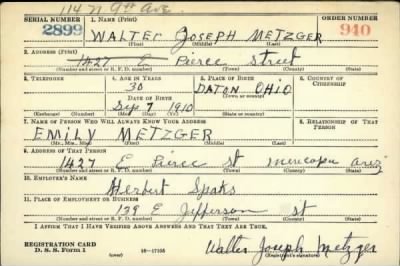 114 N 9th Ave.
SERIAL NUMBER 1. NAME (Print) ORDER NUMBER
2899 WALTER JOSEPH METZGER 940
(First) (Middle) (Last)
2. ADDRESS (Print)
1427 E Pierce Street
(Number and street or R. F. D. number) (Town) (County) (State)
3. TELEPHONE 4. AGE IN YEARS 5. PLACE OF BIRTH 6. COUNTRY OF CITIZENSHIP
30 DATON OHIO
DATE OF BIRTH (Town or county)
Sep 7 1910
(Exchange) (Number) (Mo.) (Day) (Yr.) (State or country)
7. NAME OF PERSON WHO WILL ALWAYS KNOW YOUR ADDRESS 8. RELATIONSHIP OF THAT PERSON
EMILY METZGER
(Mr., Mrs., Miss) (First) (Middle) (Last)
9. ADDRESS OF THAT PERSON
1427 E Pierce st mericopa ariz
(Number and street or R. F. D. number) (Town) (County) (State)
10. EMPLOYER'S NAME
Herbert Spaks
11. PLACE OF EMPLOYMENT OR BUSINESS
139 E Jefferson st
(Number and street or R. F. D. number) (Town) (County) (State)
I AFFIRM THAT I HAVE VERIFIED ABOVE ANSWERS AND THAT THEY ARE TRUE.
REGISTRATION CARD
D. S. S. Form 1 16-17105 Walter Joseph Metzger
(Registrant's signature)